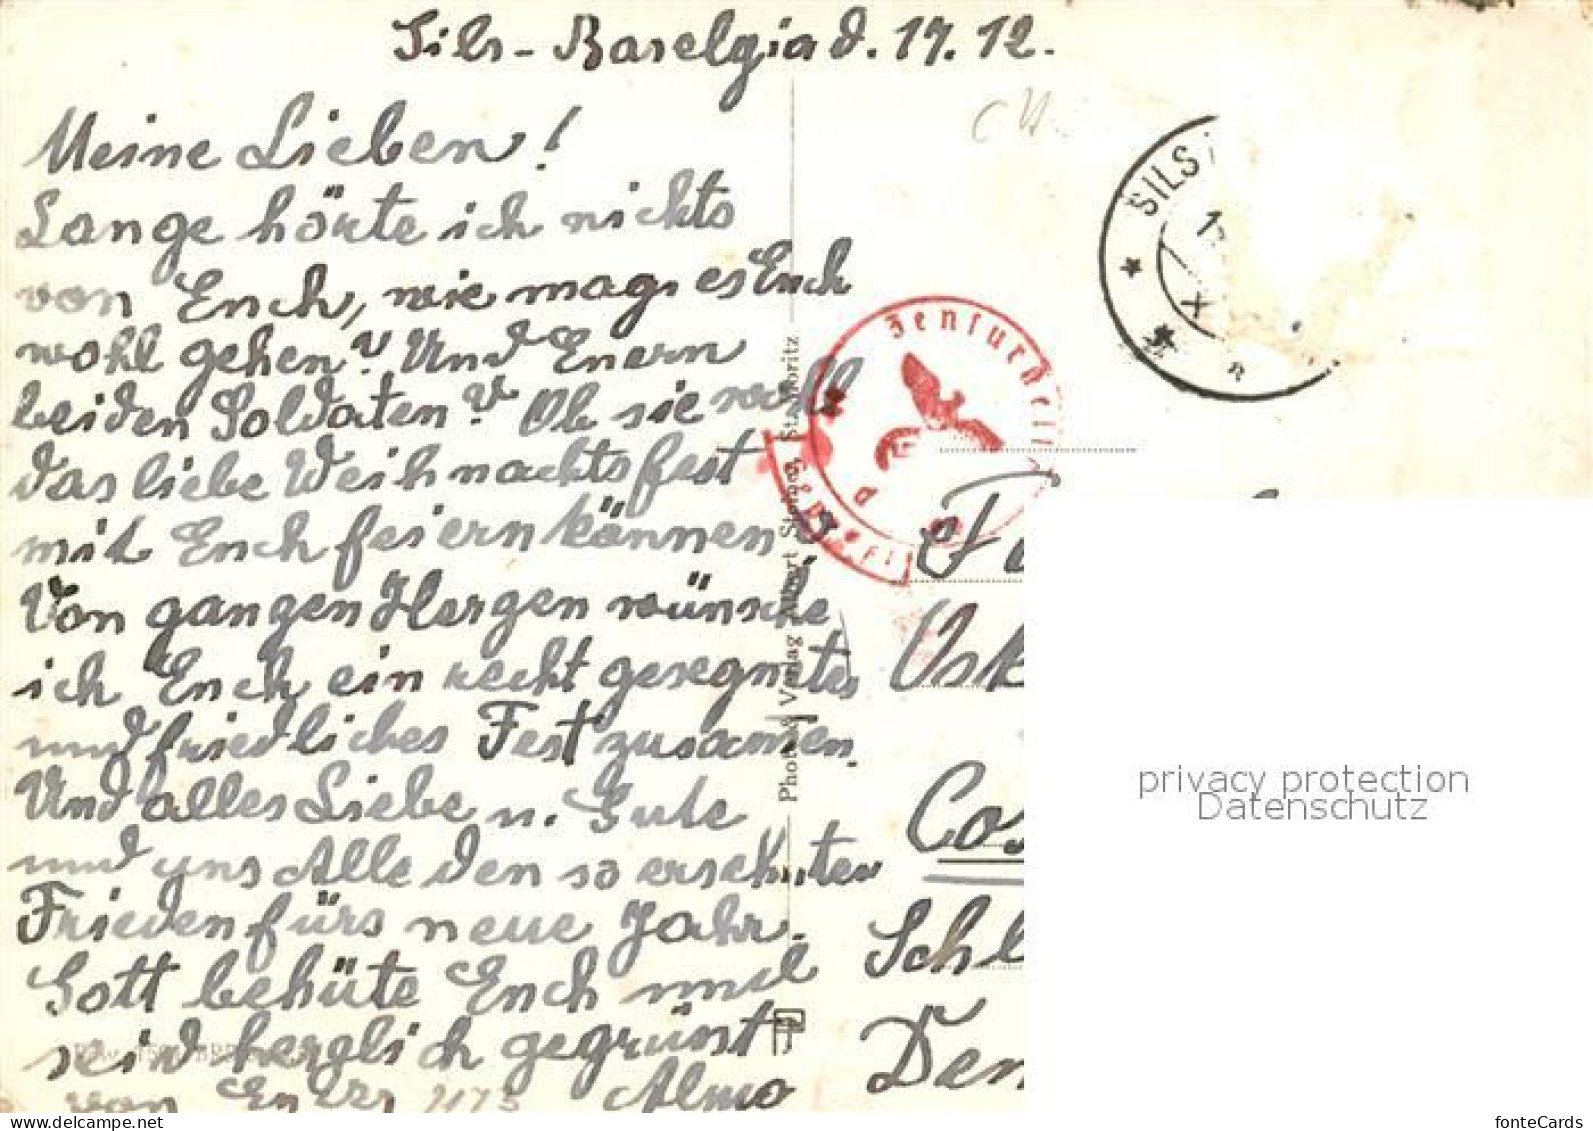 Sils-Baselgia d. 17. 12.
Meine Lieben!
Lange hörte ich nichts
von Euch, wie mag es Euch
wohl gehen? Und Euern
beiden Soldaten? Ob sie wohl
das liebe Weihnachtsfest
mit Euch feiern können?
Von ganzen Herzen wünsche
ich Euch ein recht gesegnetes
und friedliches Fest zusamen.
Und alles Liebe u. Gute
und uns Alle den so ersehnten
Frieden fürs neue Jahr.
Gott behüte Euch und
seid herzlich gegrüsst
von Eurer Almo
7175
Photo & Verlag Albert Steiner, St. Moritz
SILS
X
Zensurstelle
geöffnet
Cos
Schl
privacy protection
Datenschutz
fonteCards
www.delcampe.net